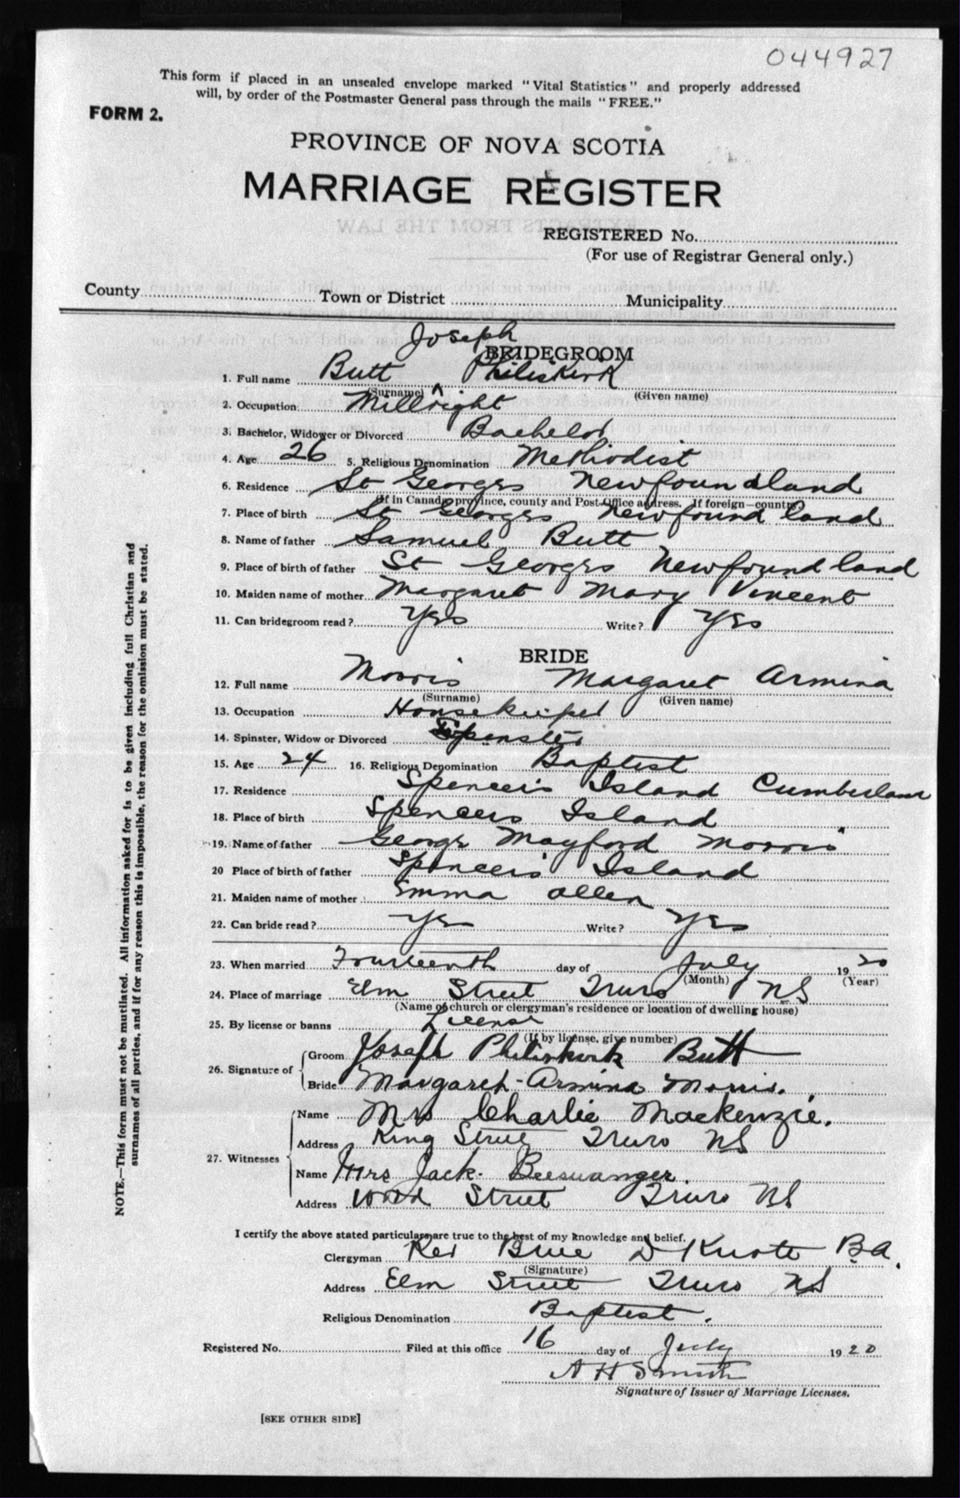 044927
This form if placed in an unsealed envelope marked "Vital Statistics" and properly addressed
will, by order of the Postmaster General pass through the mails "FREE."
FORM 2.
PROVINCE OF NOVA SCOTIA
MARRIAGE REGISTER
EXTRACTS FROM THE LAW
REGISTERED No.
(For use of Registrar General only.)
County Town or District Municipality
Joseph
BRIDEGROOM
1. Full name Butt ^ Philiskirk
(Surname) (Given name)
2. Occupation Millright
3. Bachelor, Widower or Divorced Bachelor
4. Age 26 5. Religious Denomination Methodist
6. Residence St Georges Newfoundland
(If in Canada, province, county and Post Office address. If foreign—country)
7. Place of birth St Georges Newfoundland
8. Name of father Samuel Butt
9. Place of birth of father St Georges Newfoundland
10. Maiden name of mother Margaret Mary Vincent
11. Can bridegroom read? Yes Write? Yes
BRIDE
12. Full name Morris Margaret Armina
(Surname) (Given name)
13. Occupation Housekeeper
14. Spinster, Widow or Divorced Spinster
15. Age 24 16. Religious Denomination Baptist
17. Residence Spencer's Island Cumberland
18. Place of birth Spencers Island
19. Name of father George Mayford Morris
20 Place of birth of father Spencer's Island
21. Maiden name of mother Emma Allen
22. Can bride read? Yes Write? Yes
23. When married Fourteenth day of July 1920
(Month) (Year)
24. Place of marriage Elm Street Truro NS
(Name of church or clergyman's residence or location of dwelling house)
25. By license or banns License
(If by license, give number)
26. Signature of Groom Joseph Philiskirk Butt
Bride Margaret Armina Morris.
27. Witnesses Name Mrs Charlie Mackenzie.
Address King Street Truro NS
Name Mrs Jack
Address Wood Street Truro NS
I certify the above stated particulars are true to the best of my knowledge and belief.
Clergyman Rev D B.A.
(Signature)
Address Elm Street Truro NS
Religious Denomination Baptist.
Registered No. Filed at this office 16 day of July 1920
A H Smith
Signature of Issuer of Marriage Licenses.
[SEE OTHER SIDE]
NOTE.—This form must not be mutilated. All information asked for is to be given including full Christian and
surnames of all parties, and if for any reason this is impossible, the reason for the omission must be stated.